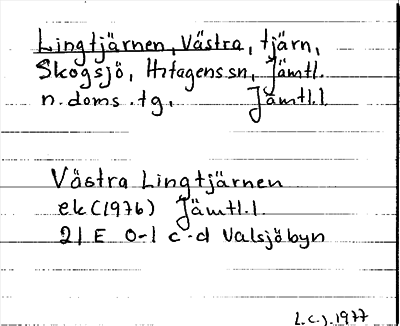 Lingtjärnen, Västra, tjärn,
Skogsjö, Htagens sn, Jämtl.
n. doms. tg. Jämtl. l
Västra Lingtjärnen
ek (1976) Jämtl. l.
21 E 0-1 c-d Valsjöbyn
L.C.J. 1977